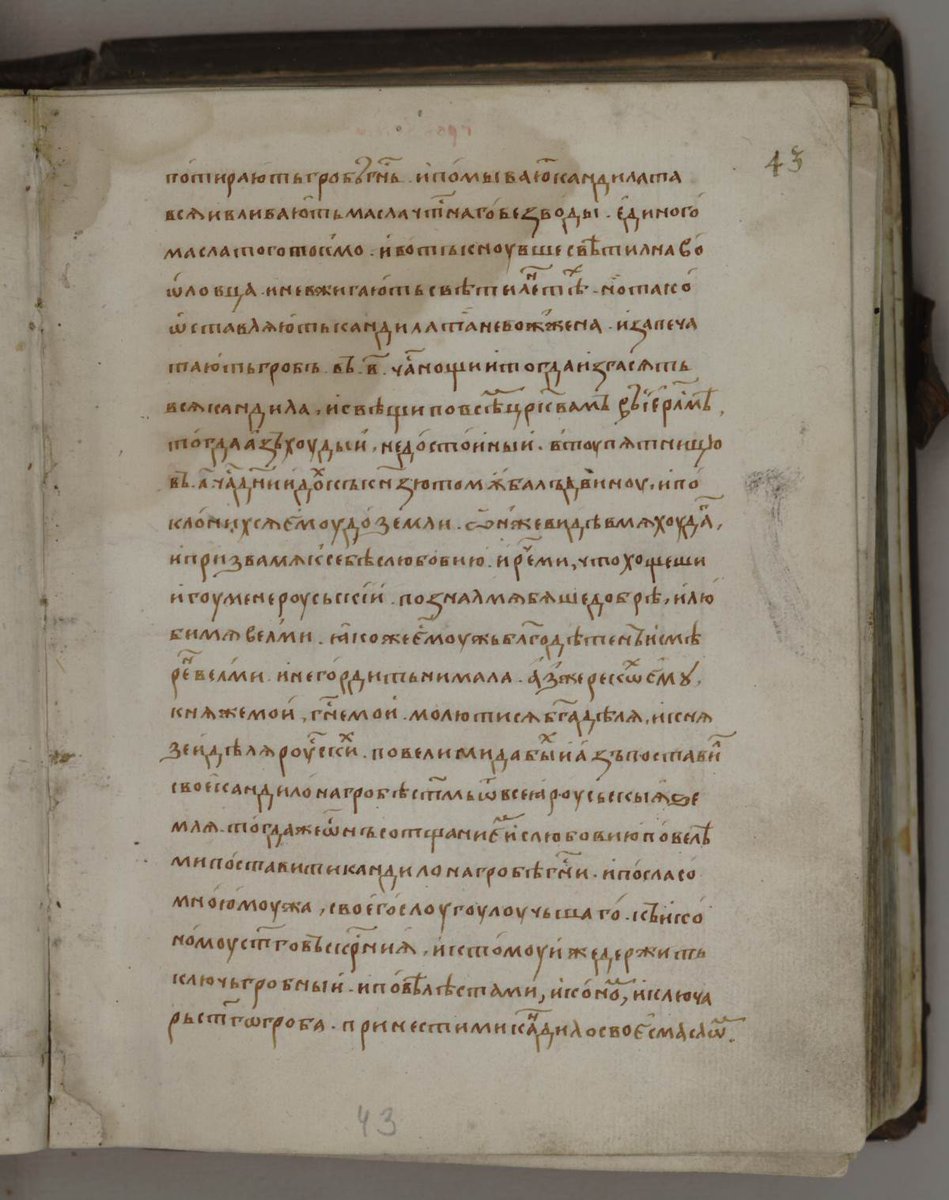 43
потираюⷮть гробъ гⷭ҇нь . и помываюⷮ кандила та
вся и вливаюⷮть масла чⷭ҇тнаго безъ воды . единого
масла того токмо . и вотъкноувше свѣтилна во
ѡловца . и не вжигаюⷮть свѣтилеⷩ҇ тѣⷯ . но тако
ѡставляюⷮть кандила та не вожжена . и запеча
таюⷮть гробъ . въ .в҃. чаⷭ҇ нощи и тогда изгасять
вся кандила , и свѣщи по всѣⷨ цр҃квамъ въ иерⷭ҇лимѣ ,
тогда азъ хоудыи , недостоиныи . в тоу пятницю
въ .а҃. чаⷭ҇ дн҃и идоⷯ къ кнз҃ю томꙋ балъдвиноу , и по
клонихся емоу до земли . ѡн же видѣв мя хоудаⷢ҇ ,
и призва мя к себѣ с любовию . и реⷱ҇ ми , что хощеши
игоумене роусьскии . позналъ мя бяше добрѣ , и лю
би мя велми . якоже емоужь блг҃одѣтенъ и смѣ
реⷩ҇ велми . и не гордить ни мала . аз же рекоⷯ емꙋ ,
княже мои , гн҃е мои . молю ти ся бг҃а дѣля , и кня
зеи дѣля роуⷭ҇скиⷯ . повели ми да быⷯ и азъ поставиⷧ҇
свое кандило на гробѣ ст҃мь ѿ всея роусьскыя зе
мля . тогда же ѡнъ со тщаниеⷨ и с любовию повелѣ
ми поставити кандило на гробѣ гⷭ҇ни . и посла со
мною моужа , своего слоугоу лоучьщаго . къ ико
номоу ст҃го въскрⷭ҇ния , и к томоу иже держить
ключь гробныи . и повелѣста ми , иконоⷨ , и ключа
рь ст҃го гроба . принести ми каⷩ҇дило свое с маслѡⷨ .
43